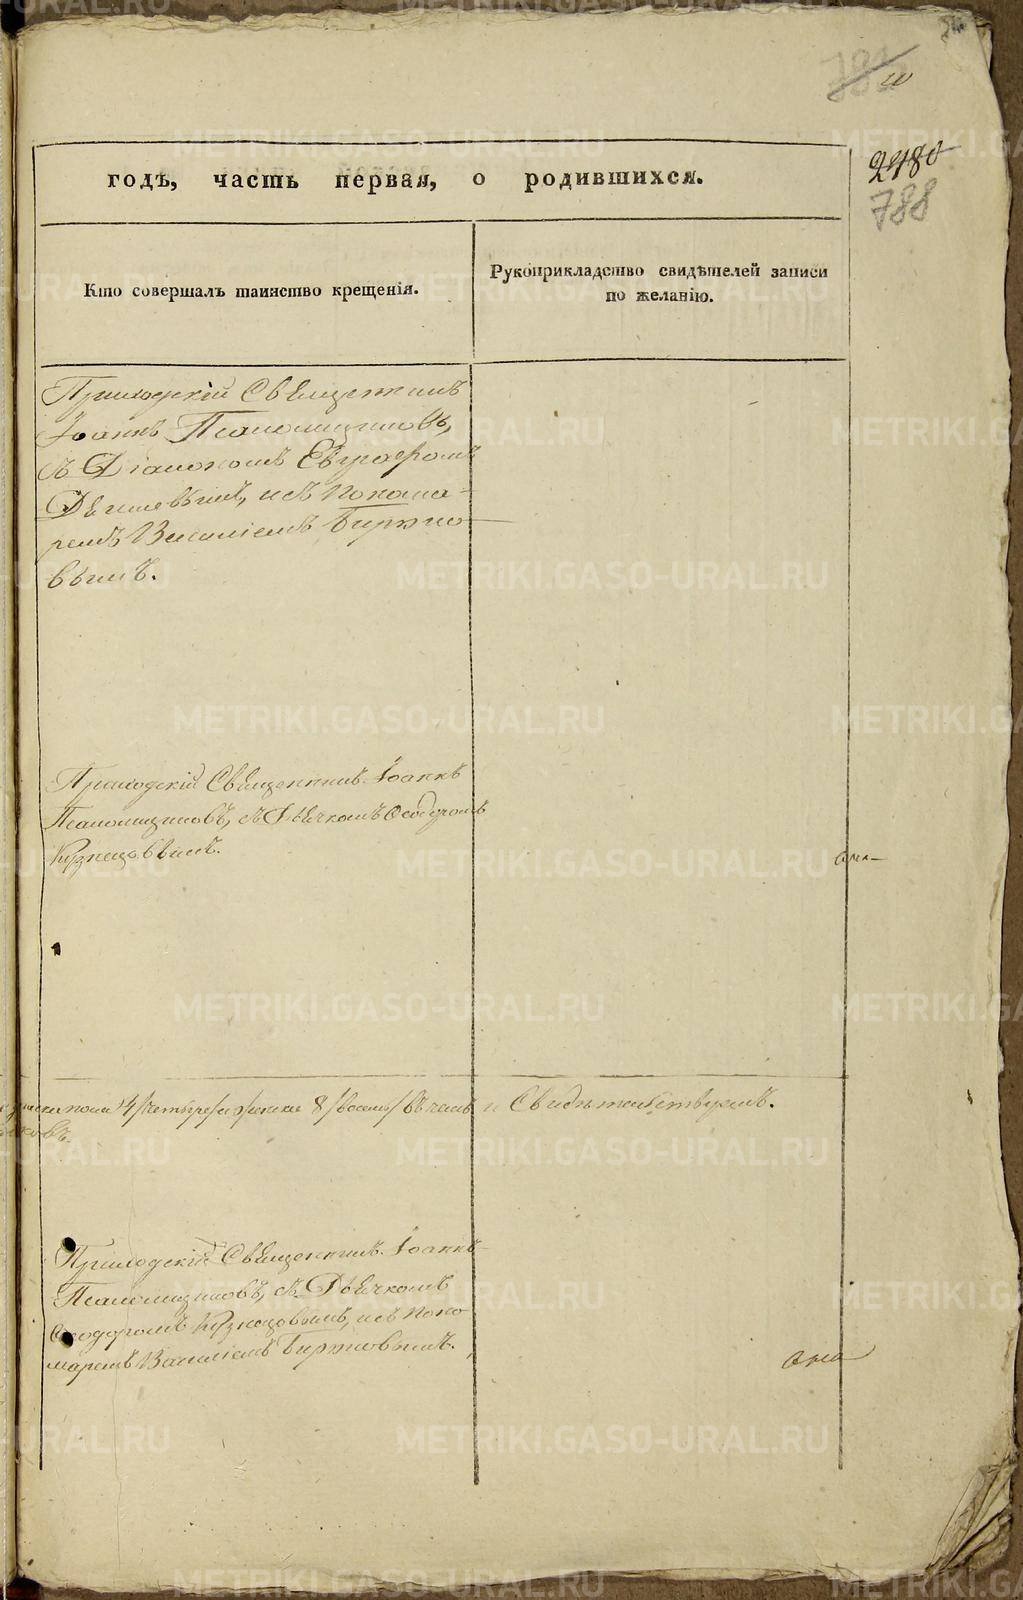 2480
788
годъ, часть первая, о родившихся.
Кто совершалъ таинство крещенія.
Рукоприкладство свидѣтелей записи
по желанію.
Приходскій Священникъ
Іоаннъ Псаломщиковъ,
съ Діакономъ Евграфомъ
и съ Понома-
ремъ Василіемъ Биртко-
вымъ.
Приходскій Священникъ Іоаннъ
Псаломщиковъ, съ Дьячкомъ Ѳеодоромъ
Кузнецовымъ.
пола 4 /четыре/ и женска 8 /восемь/ въ чемъ и Свидѣтельствуемъ.
Приходскій Священникъ Іоаннъ
Псаломщиковъ, съ Дьячкомъ
Ѳеодоромъ Кузнецовымъ, и съ Поно
маремъ Василіемъ Биртковымъ.
METRIKI.GASO-URAL.RU